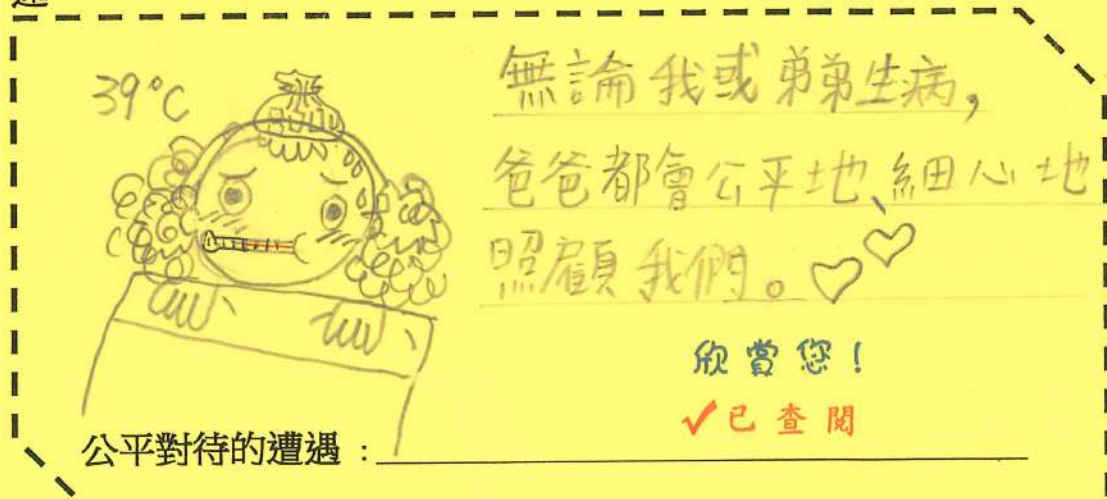 39°C
無論我或弟弟生病,
爸爸都會公平地、細心地
照顧我們。
欣賞您!
✓已查閱
公平對待的遭遇: